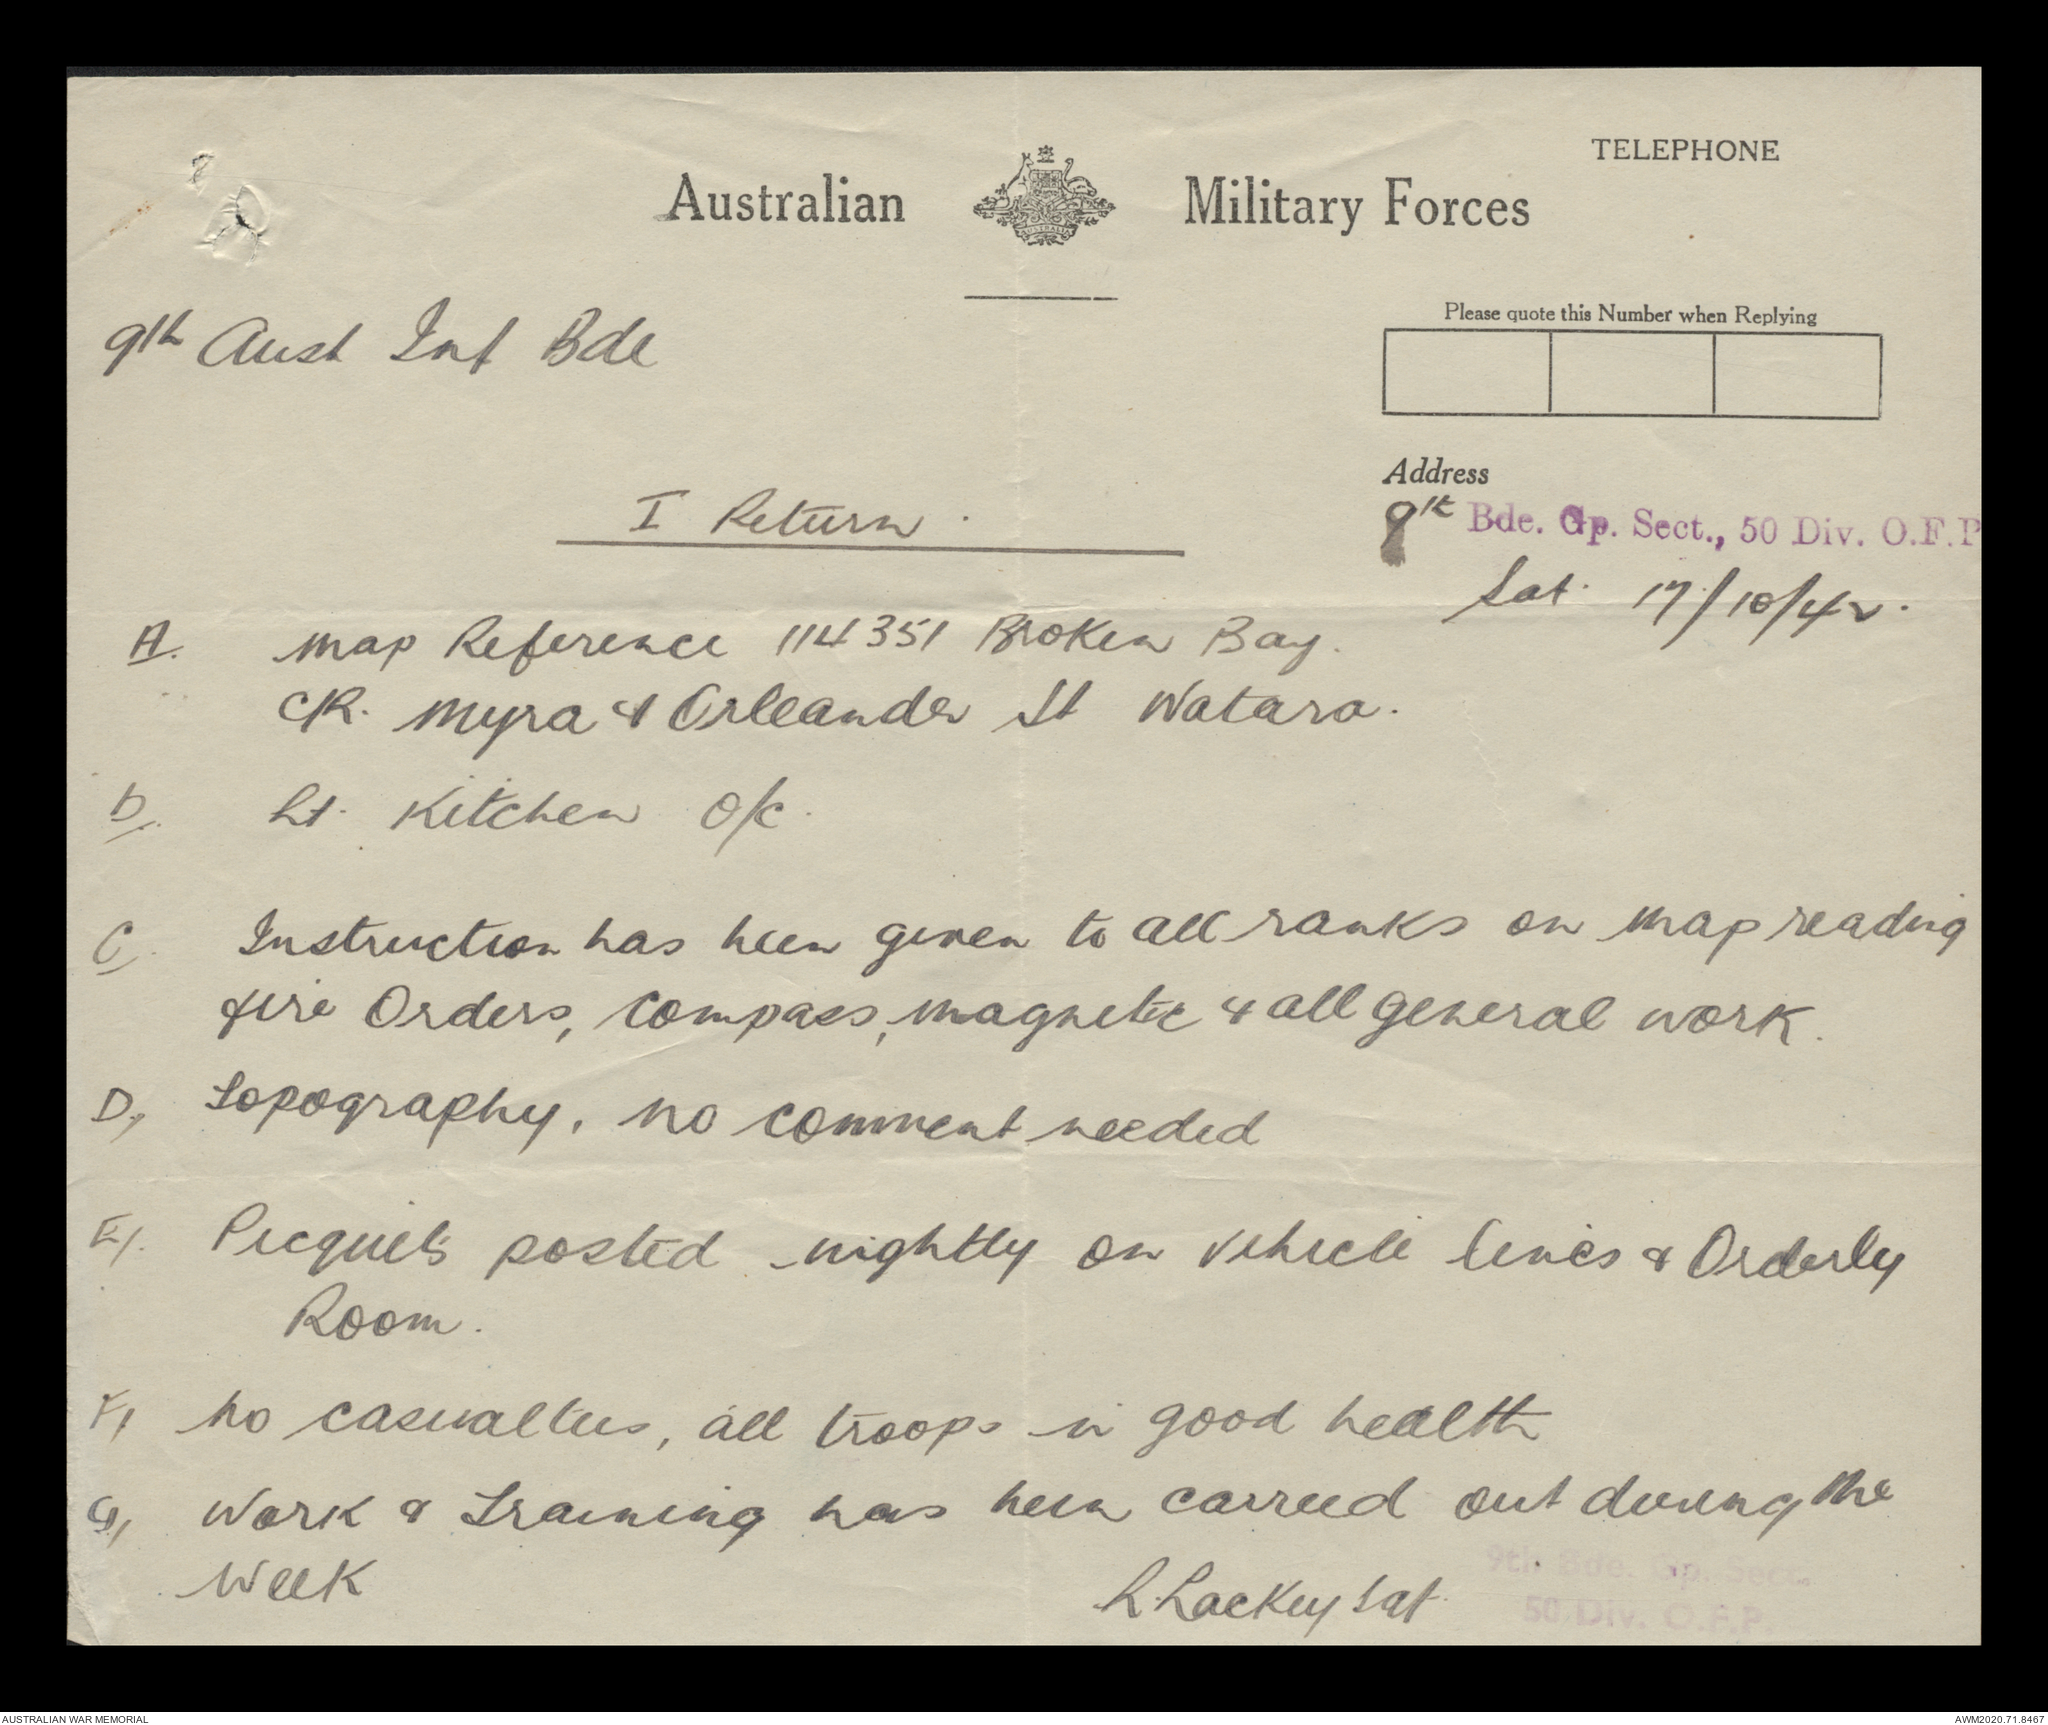 TELEPHONE
Australian Military Forces
AUSTRALIA
9th Aust Inf Bde
Please quote this Number when Replying
I Return.
Address
9th Bde. Gp. Sect., 50 Div. O.F.P
Sat. 17/10/42.
A. Map Reference 114351 Broken Bay.
CR. Myra & Orleander St Watara.
B/. Lt. Kitchen O/c.
C/. Instruction has been given to all ranks on map reading
fire Orders, Compass, magnetic & all general work.
D/, Topography, no comment needed
E/. Picquets posted nightly on vehicle lines & Orderly
Room.
F/, No casualties, all troops in good health
G/, Work & Training has been carried out during the
Week
L. Lackey Sgt.
9th Bde. Gp. Sect.
50 Div. O.F.P.
AUSTRALIAN WAR MEMORIAL
AWM2020.71.8467